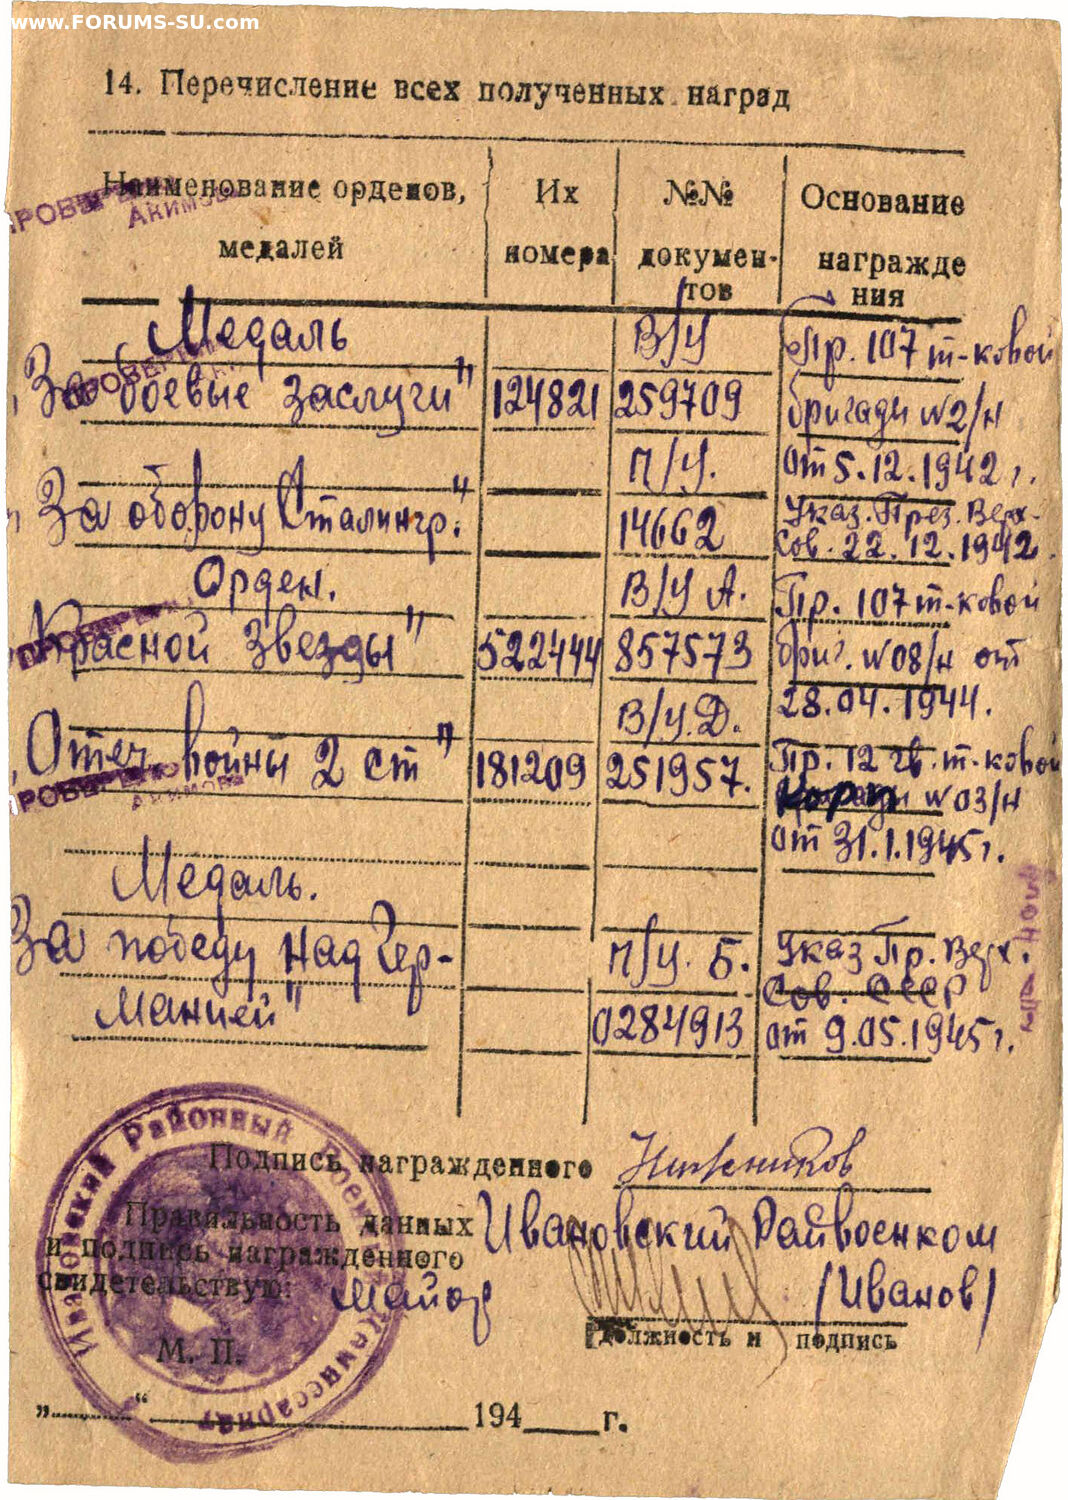 www.FORUMS-SU.com
14. Перечисление всех полученных наград
Наименование орденов, медалей
Их номера
№№ документов
Основание награждения
ПРОВЕРЕНО
АКИМОВ
Медаль
В/У
Пр. 107 т-ковой
"За боевые заслуги" 124821 259709 бригады №2/н
П/У. от 5.12.1942 г.
"За оборону Сталингр." 14662 Указ. През. Верх.
Сов. 22.12.1942.
Орден. В/У А. Пр. 107 т-ковой
"Красной Звезды" 522444 857573 бриг. №08/н от
В/У. Д. 28.04.1944.
"Отеч. войны 2 ст" 181209 251957. Пр. 12 гв. т-ковой
Корп №03/н
от 31.1.1945 г.
Медаль.
За победу над Гер- П/У. Б. Указ Пр. Верх.
Сов. СССР
манией" 0284913 от 9.05.1945 г.
Подпись награжденного
Правильность данных Ивановский Райвоенком
и подпись награжденного
свидетельствую: майор /Иванов/
Должность и подпись
М. П.
Ивановский Районный Военный Комиссариат
„ “ 194 г.